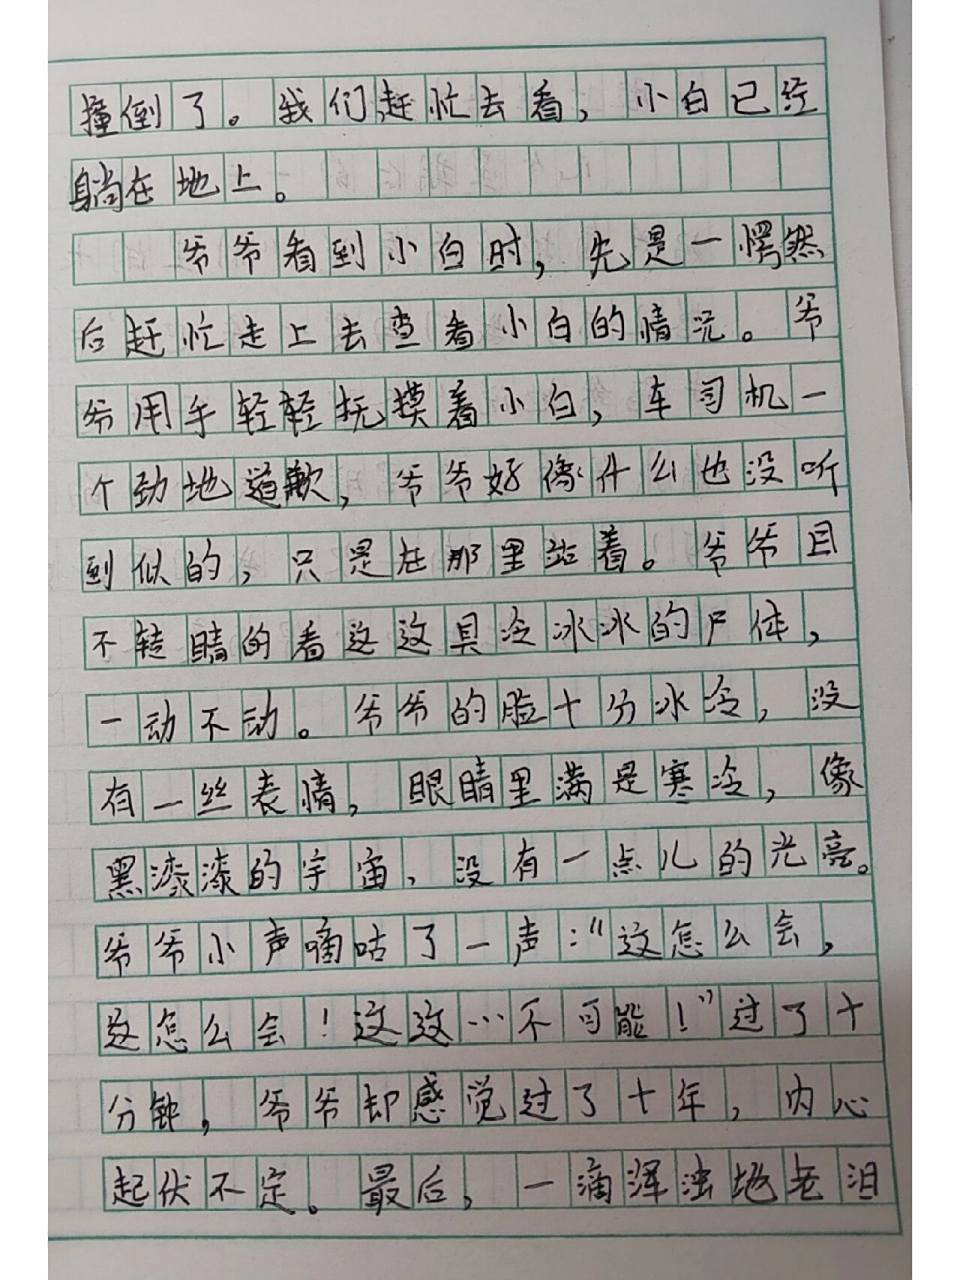 撞倒了。我们赶忙去看，小白已经
躺在地上。
爷爷看到小白时，先是一愕然
后赶忙走上去查看小白的情况。爷
爷用手轻轻抚摸着小白，车司机一
个劲地道歉，爷爷好像什么也没听
到似的，只是在那里站着。爷爷目
不转睛的看这这具冷冰冰的尸体，
一动不动。爷爷的脸十分冰冷，没
有一丝表情，眼睛里满是寒冷，像
黑漆漆的宇宙，没有一点儿的光亮。
爷爷小声嘀咕了一声：“这怎么会，
这怎么会！这这…不可能！”过了十
分钟，爷爷却感觉过了十年，内心
起伏不定。最后，一滴浑浊地老泪